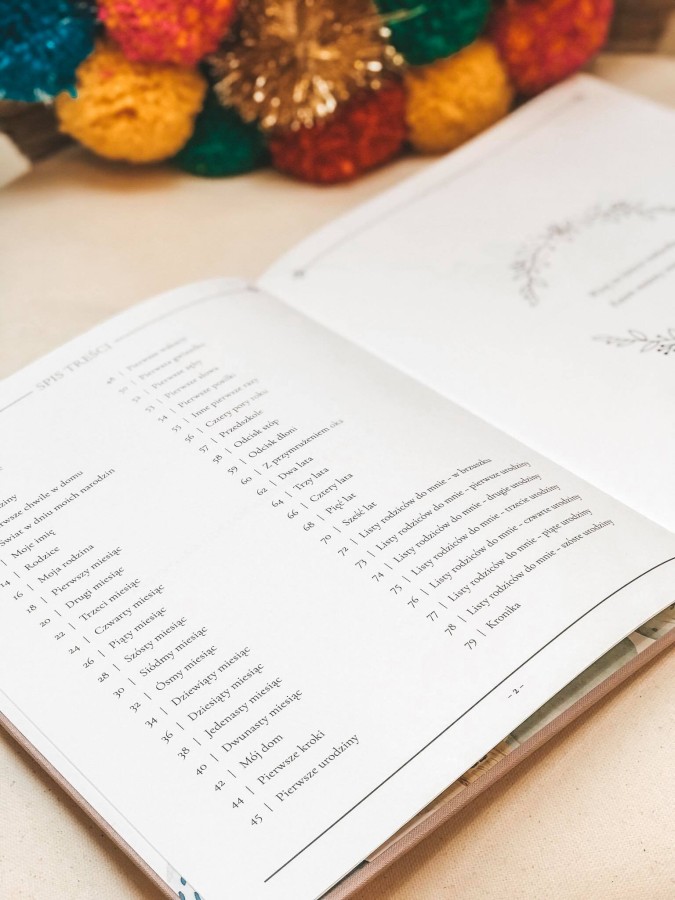 SPIS TREŚCI
chwile w domu
Świat w dniu moich narodzin
| Moje imię
14 | Rodzice
16 | Moja rodzina
18 | Pierwszy miesiąc
20 | Drugi miesiąc
22 | Trzeci miesiąc
24 | Czwarty miesiąc
26 | Piąty miesiąc
28 | Szósty miesiąc
30 | Siódmy miesiąc
32 | Ósmy miesiąc
34 | Dziewiąty miesiąc
36 | Dziesiąty miesiąc
38 | Jedenasty miesiąc
40 | Dwunasty miesiąc
42 | Mój dom
44 | Pierwsze kroki
45 | Pierwsze urodziny
48 | Pierwsze wakacje
| Pierwsza gwiazdka
52 | Pierwsze zęby
53 | Pierwsze słowa
54 | Pierwsze posiłki
55 | Inne pierwsze razy
56 | Cztery pory roku
57 | Przedszkole
58 | Odcisk stóp
59 | Odcisk dłoni
60 | Z przymrużeniem oka
62 | Dwa lata
64 | Trzy lata
66 | Cztery lata
68 | Pięć lat
70 | Sześć lat
72 | Listy rodziców do mnie - w brzuszku
73 | Listy rodziców do mnie - pierwsze urodziny
74 | Listy rodziców do mnie - drugie urodziny
75 | Listy rodziców do mnie - trzecie urodziny
76 | Listy rodziców do mnie - czwarte urodziny
77 | Listy rodziców do mnie - piąte urodziny
78 | Listy rodziców do mnie - szóste urodziny
79 | Kronika
- 2 -